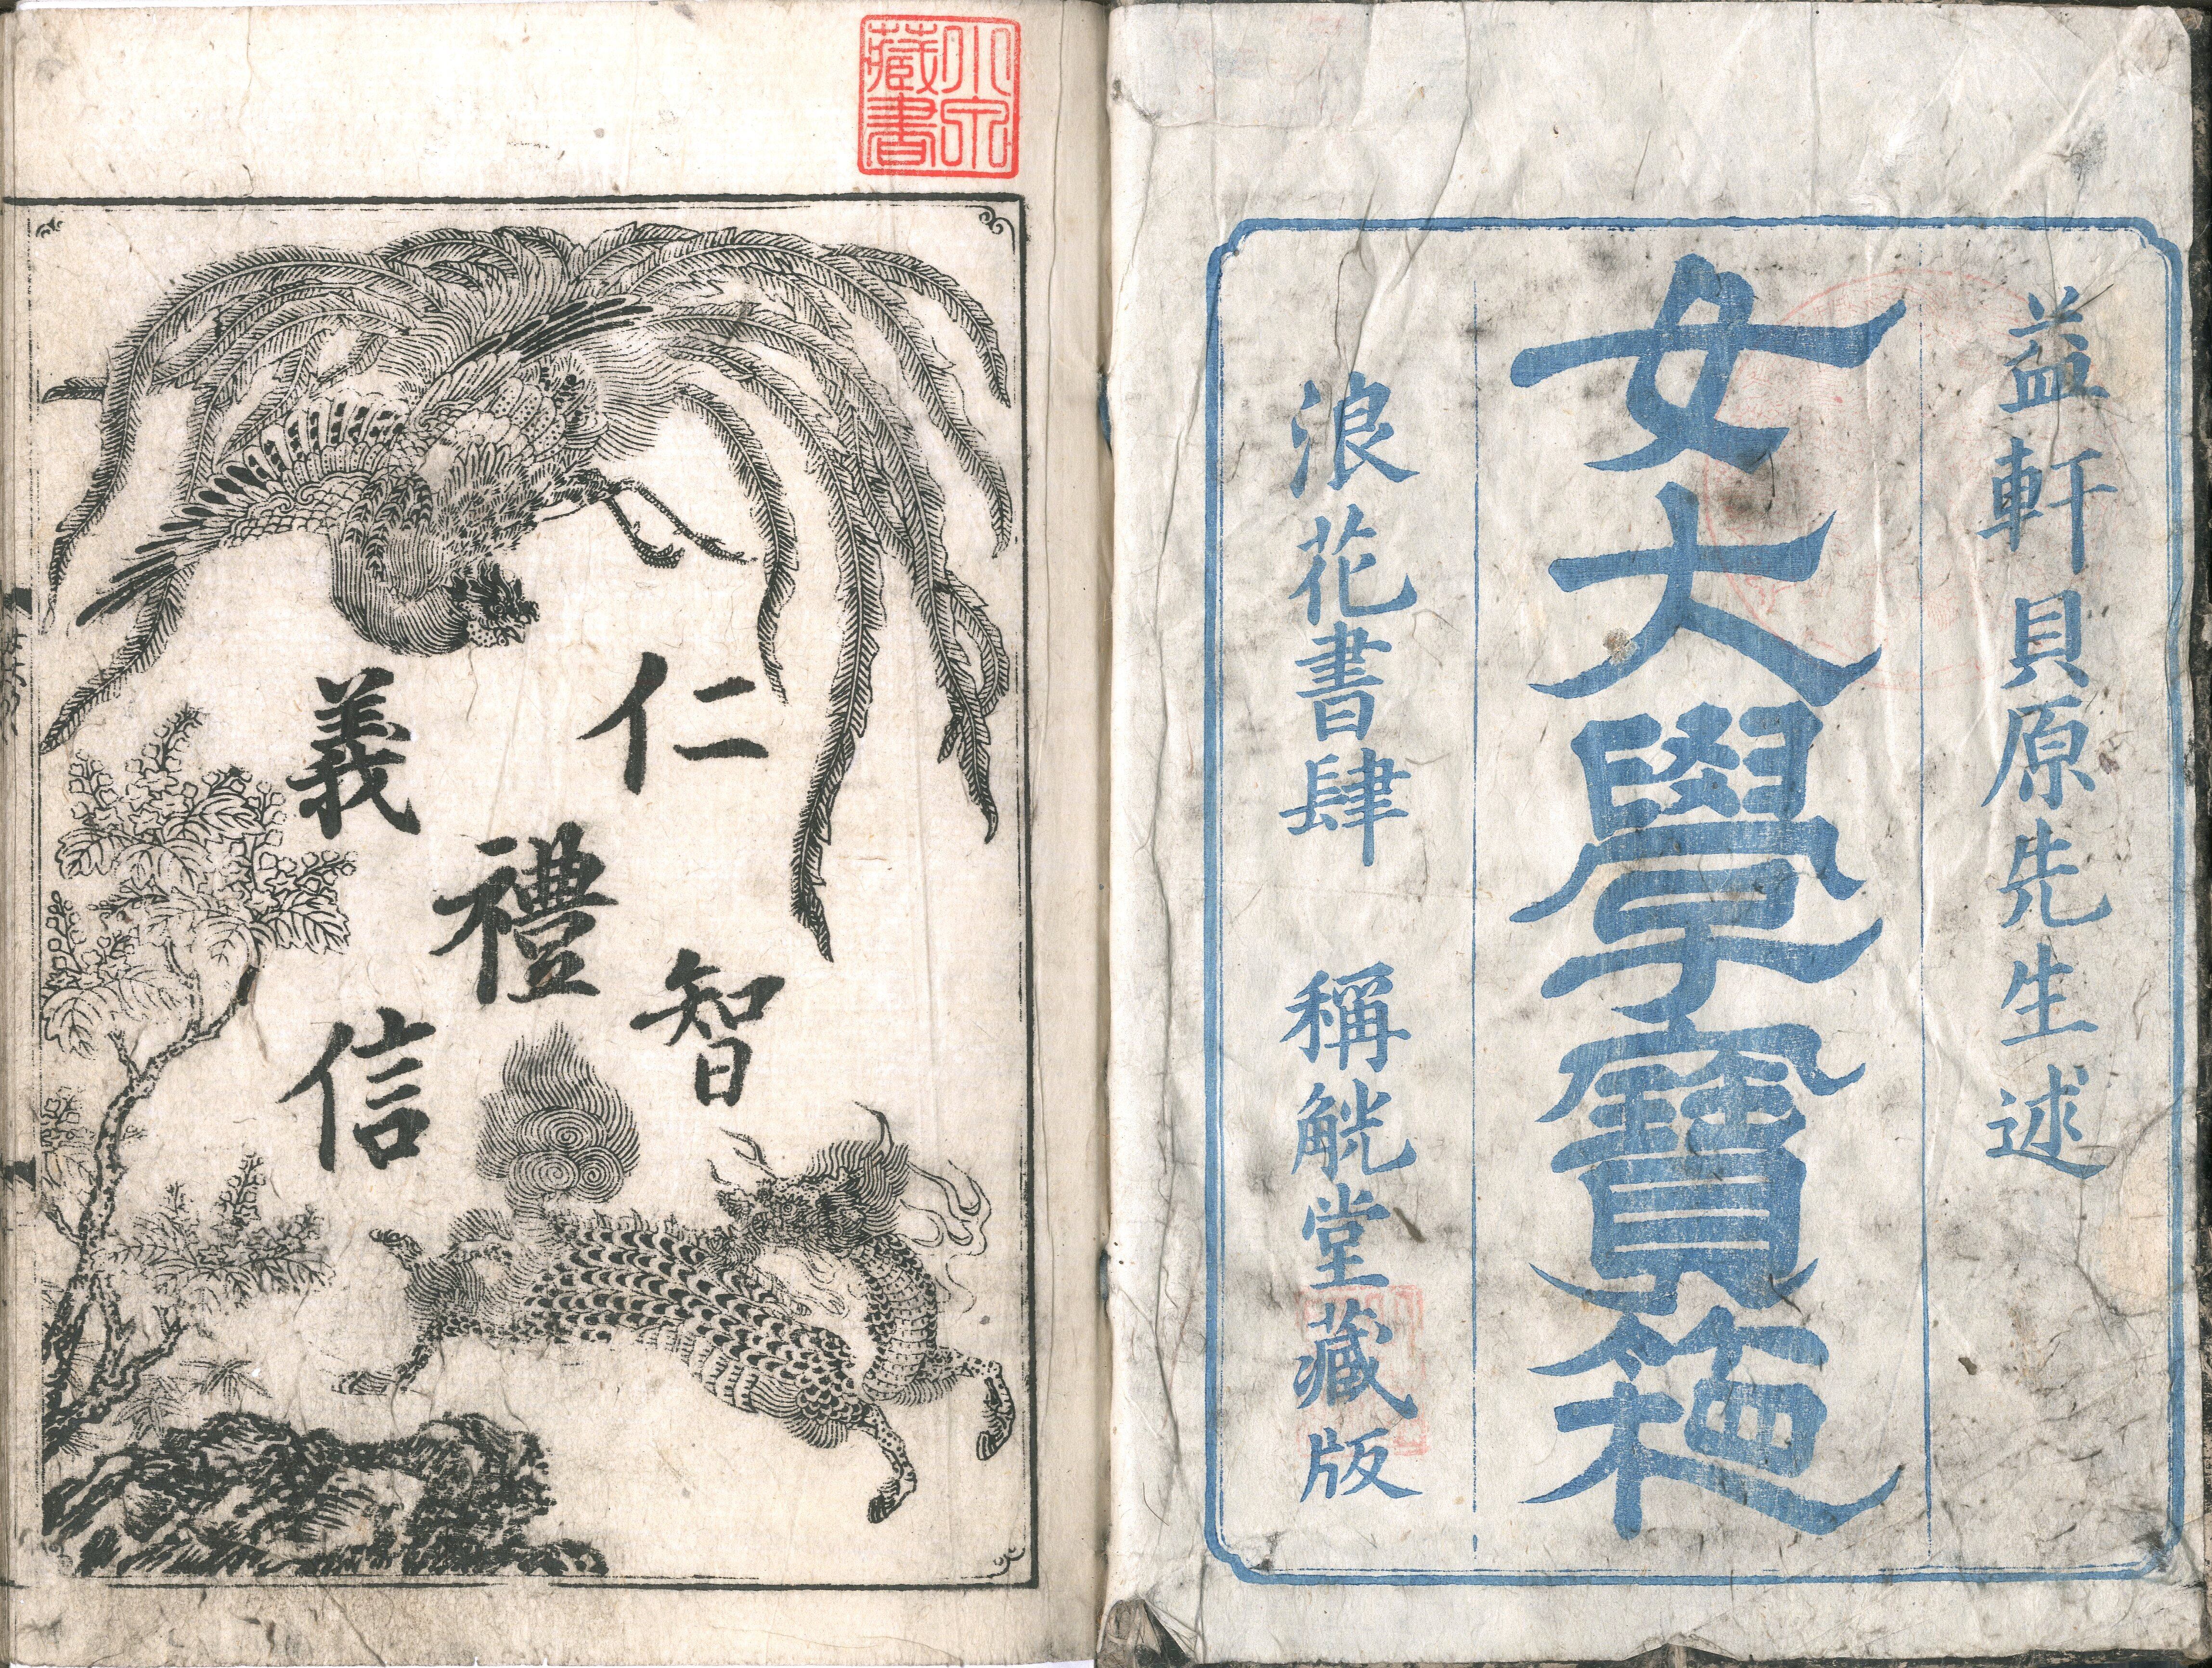 益軒貝原先生述
女大學寶箱
浪花書肆 稱觥堂藏版
小泉
藏書
仁
義
禮
智
信